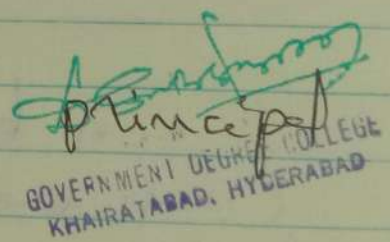 principal
GOVERNMENT DEGREE COLLEGE
KHAIRATABAD, HYDERABAD